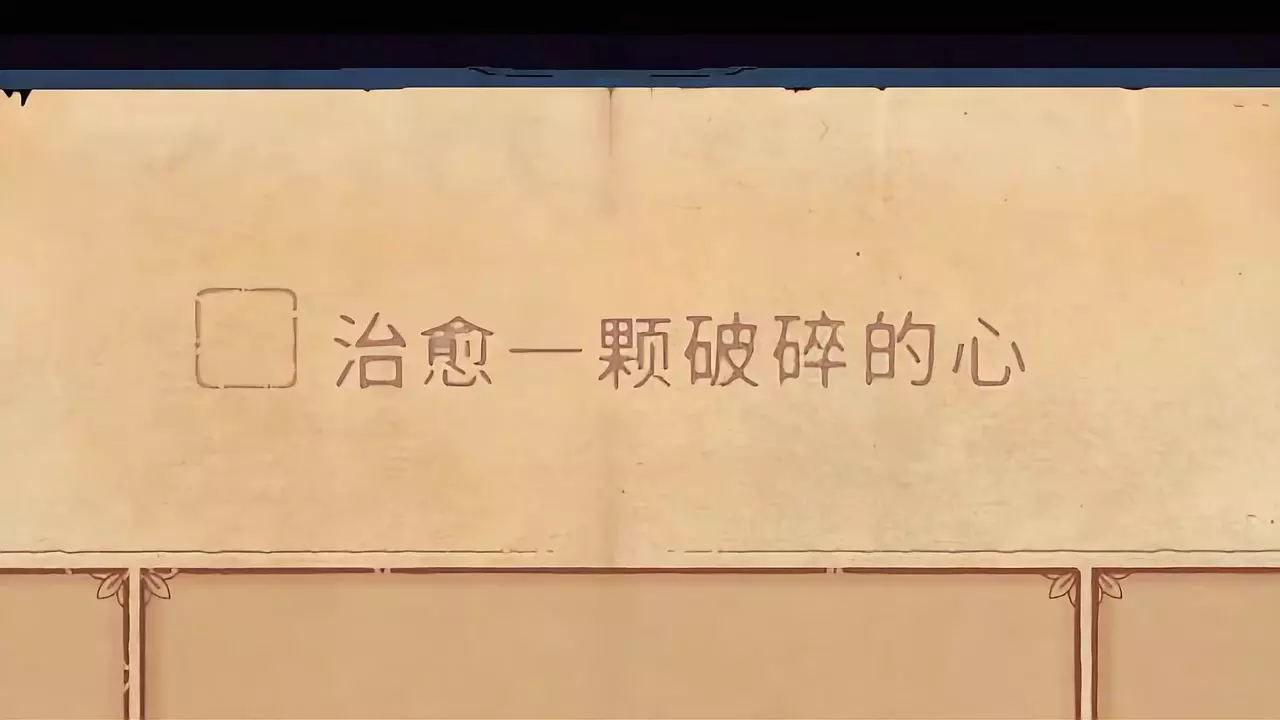 治愈一颗破碎的心